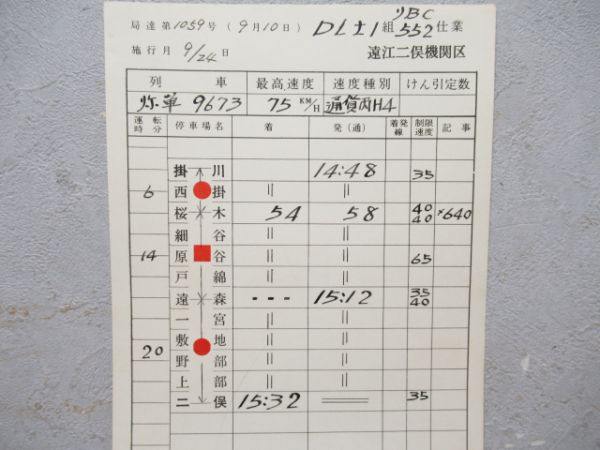 局達第1059号(9月10日) DL土1組 552仕業
施行月 9/24日 遠江二俣機関区
列 車 最高速度 速度種別 けん引定数
弥単 9673 75 KM/H 通貨丙H4
運転時分 停車場名 着 発(通) 着発線 制限速度 記事
掛川 14:48 35
6 西掛 〃 〃
桜木 54 58 40 40 640
細谷 〃 〃
14 原谷 〃 〃 65
戸綿 〃 〃
遠森 --- 15:12 35 40
一宮 〃 〃
敷地 〃 〃
20 野部 〃 〃
上部 〃 〃
二俣 15:32 35